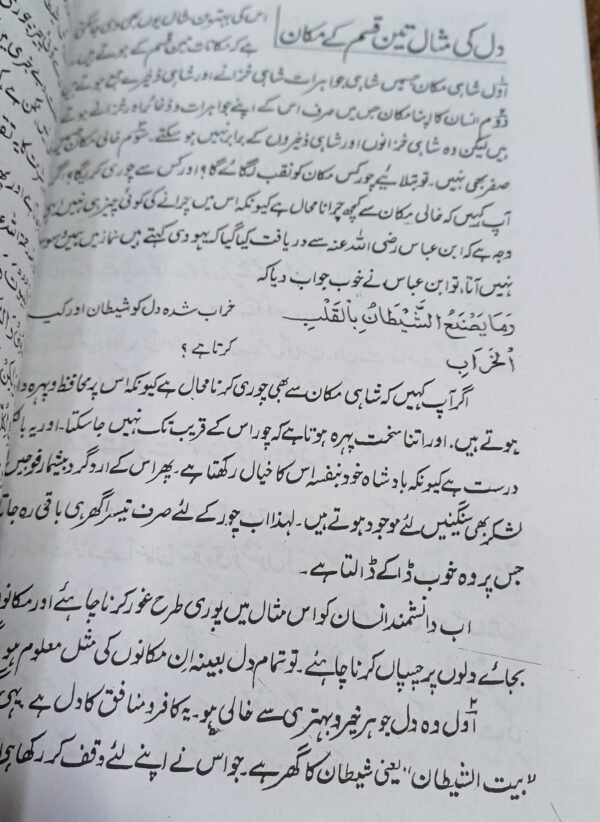 دل کی مثال تین قسم کے مکان
اس کی بہترین مثال یوں بھی دی جا سکتی
ہے کہ مکانات تین قسم کے ہوتے ہیں۔
اوّل شاہی مکان جسمیں شاہی جواہرات شاہی خزانے اور شاہی ذخیرے جمع ہوتے ہیں
دوم انسان کا اپنا مکان جس میں صرف اس کے اپنے جواہرات و ذخائر اور خزانے ہوتے
ہیں لیکن وہ شاہی خزانوں اور شاہی ذخیروں کے برابر نہیں ہو سکتے۔ سوم خالی مکان جسمیں
صفر بھی نہیں۔ تو بتلائیے چور کس مکان کو نقب لگائے گا؟ اور کس سے چوری کریگا؟ اگر
آپ کہیں کہ خالی مکان سے کچھ چرانا محال ہے کیونکہ اس میں چرانے کی کوئی چیز ہی نہیں
وجہ ہے کہ ابن عباس رضی اللہ عنہ سے دریافت کیا گیا کہ یہودی کہتے ہیں نماز میں ہمیں
نہیں آتا، تو ابن عباس نے خوب جواب دیا کہ
وَمَا یَصْنَعُ الشَّیْطَانُ بِالْقَلْبِ خراب شدہ دل کو شیطان اور کیا
الْخَرَابِ کرتا ہے؟
اگر آپ کہیں کہ شاہی مکان سے بھی چوری کرنا محال ہے کیونکہ اس پر محافظ و پہرہ دار
ہوتے ہیں، اور اتنا سخت پہرہ ہوتا ہے کہ چور اس کے قریب تک نہیں جا سکتا۔ اور یہ
درست ہے کیونکہ بادشاہ خود بنفسہ اس کا خیال رکھتا ہے۔ پھر اس کے ارد گرد بیشمار فوجیں
لشکر بھی سنگینیں لئے موجود ہوتے ہیں۔ لہذا اب چور کے لئے صرف تیسرا گھر ہی باقی رہ جاتا
جس پر وہ خوب ڈاکے ڈالتا ہے۔
اب دانشمند انسان کو اس مثال میں پوری طرح غور کرنا چاہئے اور
بجائے دلوں پر چسپاں کرنا چاہئے۔ تو تمام دل بعینہ ان مکانوں کی مثل معلوم
اوّل وہ دل جو ہر خیر و بہتری سے خالی ہو۔ یہ کافر و منافق کا دل ہے یہی
"بیت الشیطان" یعنی شیطان کا گھر ہے۔ جو اس نے اپنے لئے وقف کر رکھا